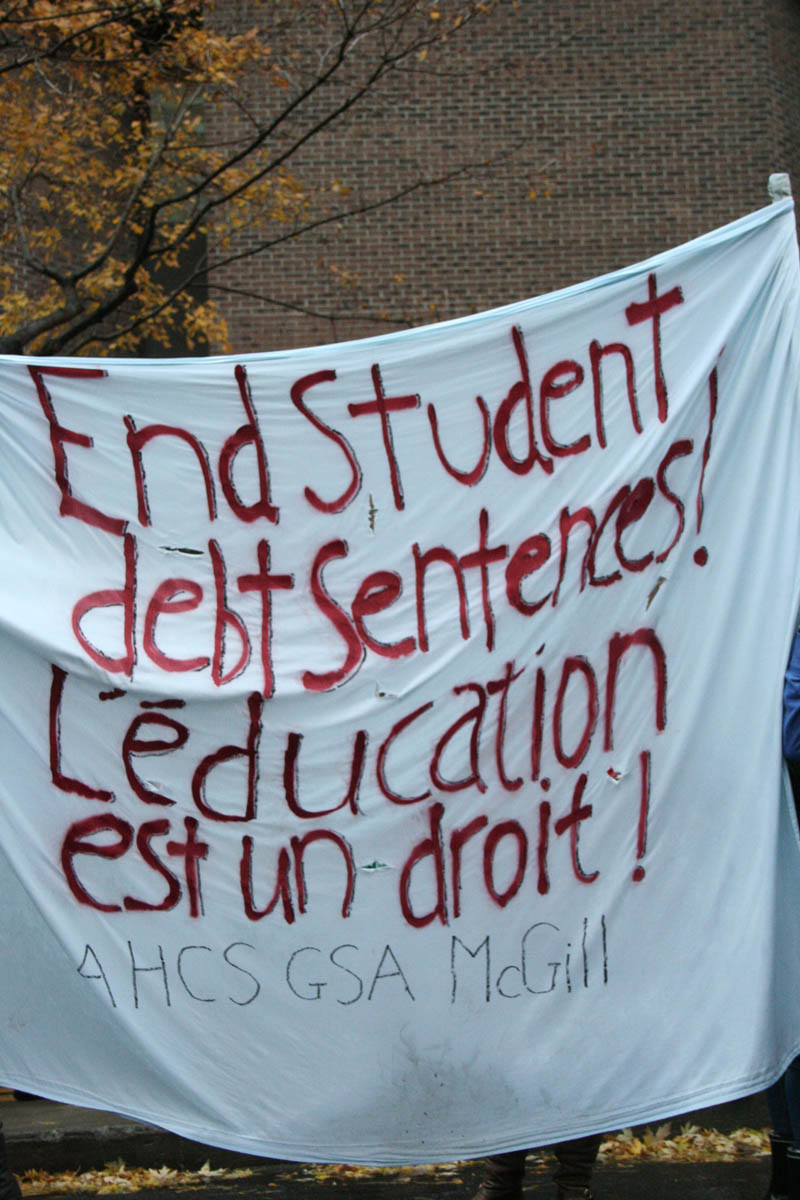 End Student
debt Sentences!
L'éducation
est un droit!
AHCS GSA McGill